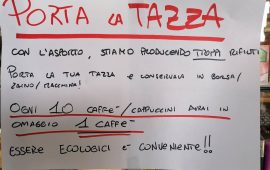 PORTA LA TAZZA
CON L'ASPORTO, STIAMO PRODUCENDO TROPPI RIFIUTI
PORTA LA TUA TAZZA E CONSERVALA IN BORSA/
ZAINO/MACCHINA!
OGNI 10 CAFFE'/CAPPUCCINI AVRAI IN
OMAGGIO 1 CAFFE'
ESSERE ECOLOGICI E' CONVENIENTE!!